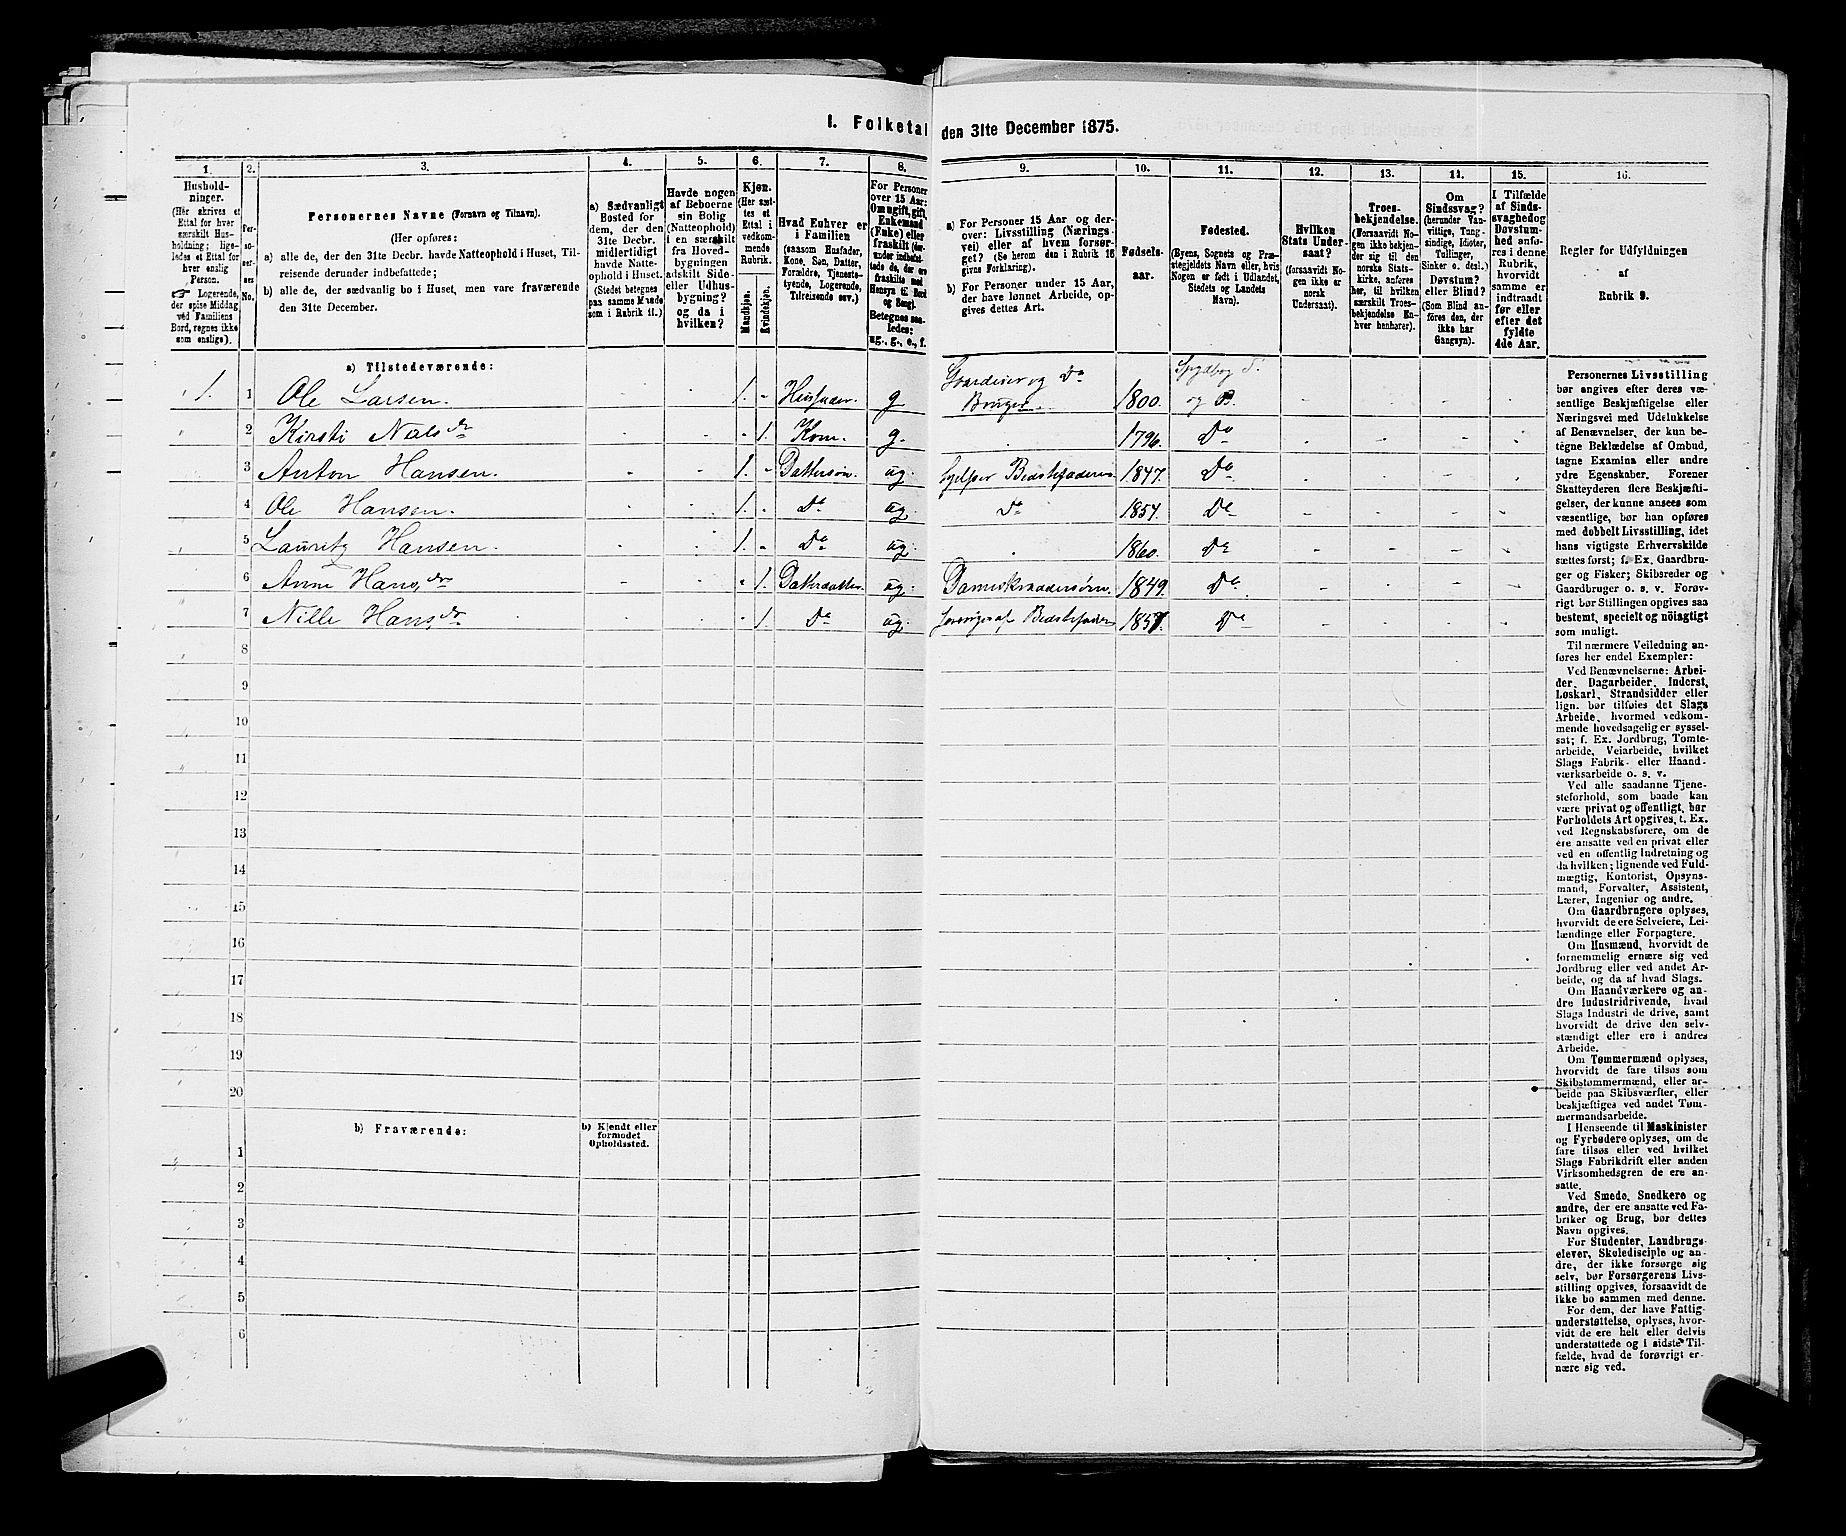 I. Folketal den 31te December 1875.
1.
2.
3.
4.
5.
6.
7.
8.
9.
10.
11.
12.
13.
14.
15.
16.
Hushold-
ninger.
(Her skrives et
Ettal for hver
særskilt Hus-
holdning; lige-
ledes et Ettal for
hver enslig
Person.
☞ Logerende,
der spise Middag
ved Familiens
Bord, regnes ikke
som enslige).
Per-
so-
ner-
nes
No.
Personernes Navne (Fornavn og Tilnavn).
(Her opføres:
a) alle de, der den 31te Decbr. havde Natteophold i Huset, Til-
reisende derunder indbefattede;
b) alle de, der sædvanlig bo i Huset, men vare fraværende
den 31te December.
a) Sædvanligt
Bosted for
dem, der den
31te Decbr.
midlertidigt
havde Natte-
ophold i Huset.
(Stedet betegnes
paa samme Maade
som i Rubrik 11.)
Havde nogen
af Beboerne
sin Bolig
(Natteophold)
i en særskilt
fra Hoved-
bygningen
adskilt Side-
eller Udhus-
bygning?
og da i
hvilken?
Kjøn.
(Her sæt-
tes et
Ettal i
vedkom-
mende
Rubrik.
Mandkjøn.
Kvindekjøn.
Hvad Enhver er
i Familien
(saasom Husfader,
Kone, Søn, Datter,
Forældre, Tjeneste-
tyende, Logerende,
Tilreisende osv.)
For Personer
over 15 Aar:
Om ugift, gift,
Enkemand
(Enke) eller
fraskilt (der-
under indbefat-
tede de, der ere
fraskilte med
Hensyn til Bord
og Seng).
Betegnes saa-
ledes:
ug., g., e., f.
a) For Personer 15 Aar og der-
over: Livsstilling (Nærings-
vei) eller af hvem forsør-
get? (Se herom den i Rubrik 16
givne Forklaring).
b) For Personer under 15 Aar,
der have lønnet Arbeide, op-
gives dettes Art.
Fødsels-
aar.
Fødested.
(Byens, Sognets og Præ-
stegjeldets Navn eller, hvis
Nogen er født i Udlandet,
Stedets og Landets
Navn).
Hvilken
Stats Under-
saat?
(forsaavidt No-
gen ikke er
norsk
Undersaat).
Troes-
bekjendelse.
(Forsaavidt No-
gen ikke bekjen-
der sig til den
norske Stats-
kirke, anføres
her, til hvilken
særskilt Troes-
bekjendelse En-
hver henhører).
Om
Sindssvag?
(herunder Van-
vittige, Tung-
sindige, Idioter,
Tullinger,
Sinker o. desl.)
Døvstum?
eller Blind?
(Som Blind an-
føres den, der
ikke har
Gangsyn).
I Tilfælde
af Sinds-
svaghed og
Døvstum-
hed anfø-
res i denne
Rubrik,
hvorvidt
samme er
indtraadt
før eller
efter det
fyldte
4de Aar.
Regler for Udfyldningen
af
Rubrik 9.
a) Tilstedeværende:
1. 1 Ole Larsen. 1. Husfader. g Gaardeier og Do Bruger. 1800. og B.
2 Kirsti Nelsdr 1. Kone. g. 1796. Do
3 Anton Hansen. 1. Dattersøn. ug. hjelper Bedstefaderen 1847. Do
4 Ole Hansen. 1. Do ug. Do 1857. Do
5 Lauritz Hansen. 1. Do ug. 1860. Do
6 Anne Hansdr 1. Datterdatter. ug. 1849. Do
7 Nille Hansdr 1. Do ug. forsørges af Bedstefaderen 1851. Do
8
9
10
11
12
13
14
15
16
17
18
19
20
b) Fraværende:
b) Kjendt eller
formodet
Opholdssted.
1
2
3
4
5
6
Personernes Livsstilling
bør angives efter deres væ-
sentlige Beskjæftigelse eller
Næringsvei med Udelukkelse
af Benævnelser, der kun be-
tegne Beklædelse af Ombud,
tagne Examina eller andre
ydre Egenskaber. Forener
Skatteyderen flere Beskjæfti-
gelser, der kunne ansees som
væsentlige, bør han opføres
med dobbelt Livsstilling, idet
hans vigtigste Erhvervskilde
sættes først; f. Ex. Gaardbru-
ger og Fisker; Skibsreder og
Gaardbruger o. s. v. Forøv-
rigt bør Stillingen opgives saa
bestemt, specielt og nöiagtigt
som muligt.
Til nærmere Veiledning an-
føres her endel Exempler:
Ved Benævnelserne: Arbei-
der, Dagarbeider, Inderst,
Løskarl, Strandsidder eller
lign. bør tilføies det Slags
Arbeide, hvormed vedkom-
mende hovedsagelig er syssel-
sat; f. Ex. Jordbrug, Tomte-
arbeide, Veiarbeide, hvilket
Slags Fabrik- eller Haand-
værksarbeide o. s. v.
Ved alle saadanne Tjene-
steforhold, som baade kan
være privat og offentligt, bør
Forholdets Art opgives, t. Ex.
ved Regnskabsførere, om de
ere ansatte ved en privat eller
ved en offentlig Indretning og
da hvilken; lignende ved Fuld-
mægtig, Kontorist, Opsyns-
mand, Forvalter, Assistent,
Lærer, Ingeniør og andre.
Om Gaardbrugere oplyses,
hvorvidt de ere Selveiere, Lei-
lændinge eller Forpagtere.
Om Husmænd, hvorvidt de
fornemmelig ernære sig ved
Jordbrug eller ved andet Ar-
beide, og da af hvad Slags.
Om Haandværkere og an-
dre Industridrivende, hvad
Slags Industri de drive, samt
hvorvidt de drive den selv-
stændigt eller ere i andres
Arbeide.
Om Tømmermænd oplyses,
hvorvidt de fare tilsøs som
Skibstømmermænd, eller ar-
beide paa Skibsværfter, eller
beskjæftiges ved andet Tøm-
mermandsarbeide.
I Henseende til Maskinister
og Fyrbødere oplyses, om de
fare tilsøs eller ved hvilket
Slags Fabrikdrift eller anden
Virksomhedsgren de ere an-
satte.
Ved Smede, Snedkere og
andre, der ere ansatte ved Fa-
briker og Brug, bør dettes
Navn opgives.
For Studenter, Landbrugs-
elever, Skoledisciple og an-
dre, der ikke forsørge sig
selv, bør Forsørgerens Livs-
stilling opgives, forsaavidt de
ikke bo sammen med denne.
For dem, der have Fattig-
understøttelse, oplyses, hvor-
vidt de ere helt eller delvis
understøttede og i sidste Til-
fælde, hvad de forøvrigt er-
nære sig ved.